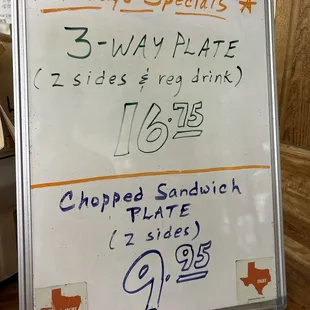 Specials
3-WAY PLATE
(2 sides & reg drink)
16.75
Chopped Sandwich
PLATE
(2 sides)
9.95